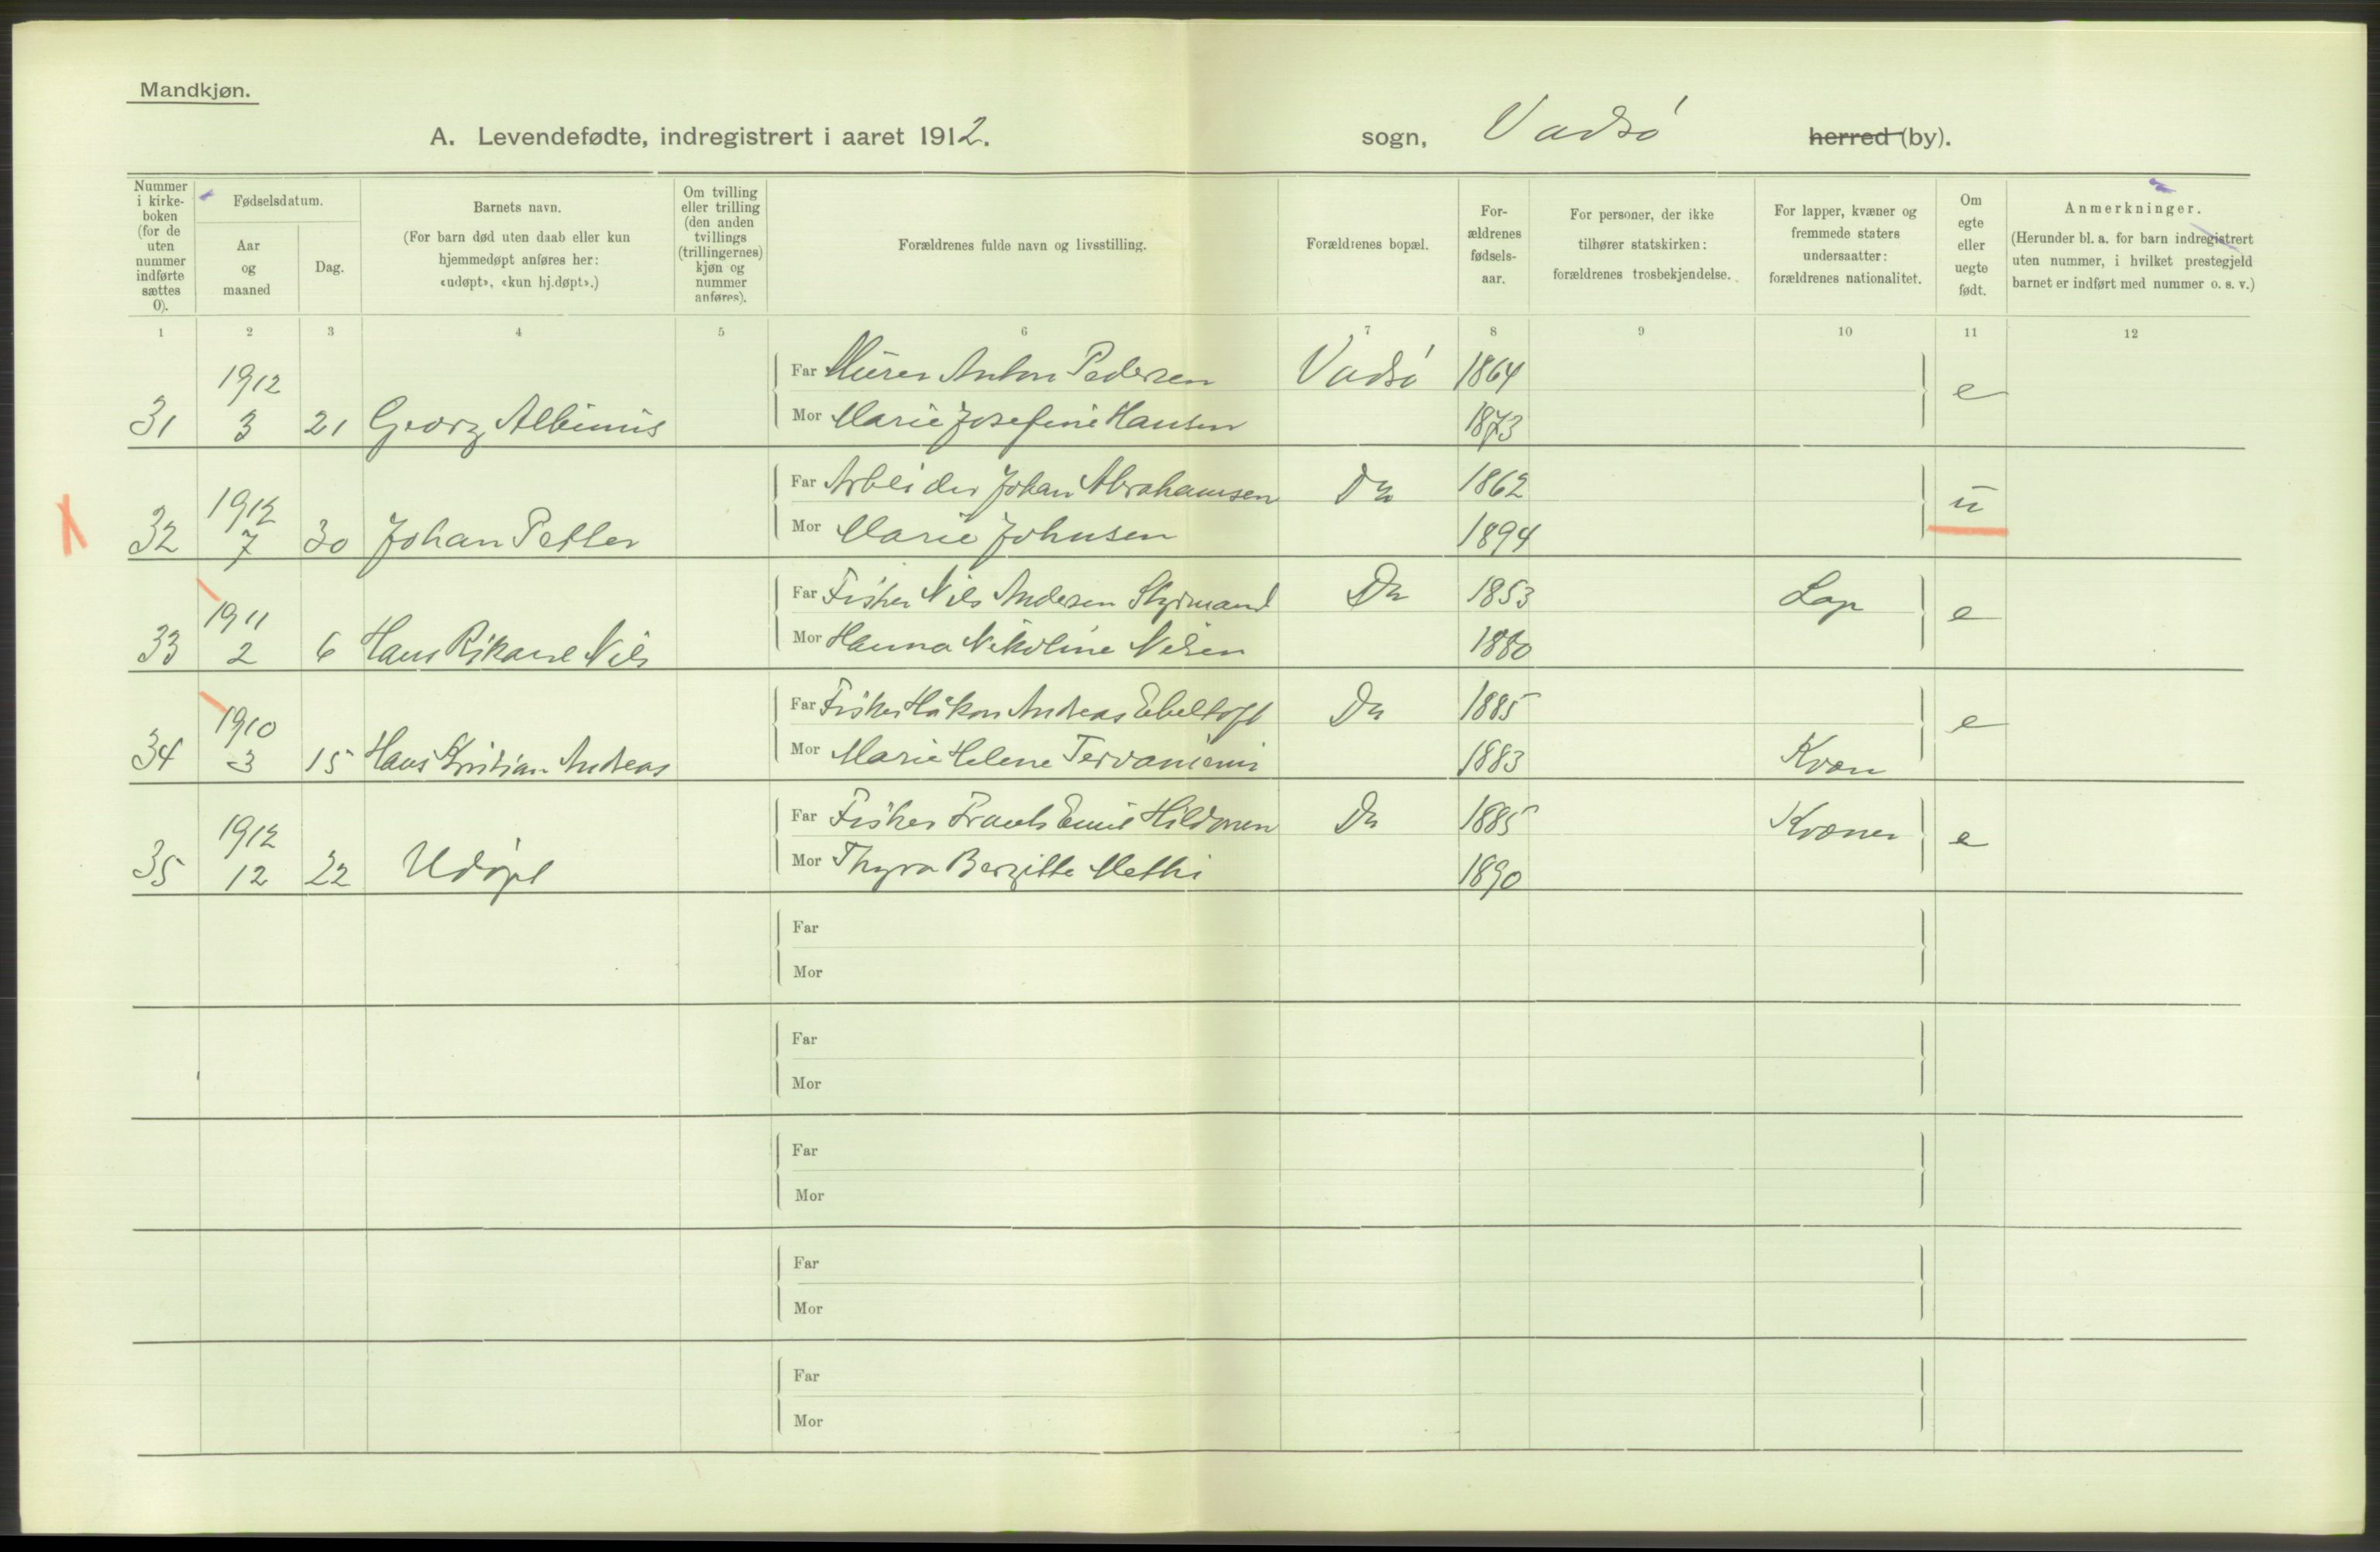 Mandkjøn.
A. Levendefødte, indregistrert i aaret 1912. sogn, Vadsø herred (by).
Nummer i kirke-boken (for de uten nummer indførte sættes 0).
Fødselsdatum.
Aar og maaned
Dag.
Barnets navn.
(For barn død uten daab eller kun hjemmedøpt anføres her: «udøpt», «kun hj.døpt».)
Om tvilling eller trilling (den anden tvillings (trillingernes) kjøn og nummer anføres).
Forældrenes fulde navn og livsstilling.
Forældrenes bopæl.
For-ældrenes fødsels-aar.
For personer, der ikke tilhører statskirken: forældrenes trosbekjendelse.
For lapper, kvæner og fremmede staters undersaatter: forældrenes nationalitet.
Om egte eller uegte født.
Anmerkninger.
(Herunder bl. a. for barn indregistrert uten nummer, i hvilket prestegjeld barnet er indført med nummer o. s. v.)
1 2 3 4 5 6 7 8 9 10 11 12
Far Murer Anton Pedersen Vadsø 1864
1912 e
31 3 21 Georg Albinus Mor Marie Josefine Hansen 1873
Far Arbeider Johan Abrahamsen Do 1862
1912 u
32 7 30 Johan Petter Mor Marie Johnsen 1894
Far Fisker Nils Andersen Styrmand Do 1853 Lap
1911 e
33 2 6 Hans Rikard Nils Mor Hanna Nikoline Nilsen 1880
Far Fisker Håkon Andreas Ebeltoft Do 1885
1910 e
34 3 15 Hans Kristian Andreas Mor Marie Helene Tervaniemi 1883 Kvæn
Far Fisker Frants Emil Hildonen Do 1885 Kvæner
1912 e
35 12 22 Udøpt Mor Thyra Bergitte Methi 1890
Far
Mor
Far
Mor
Far
Mor
Far
Mor
Far
Mor